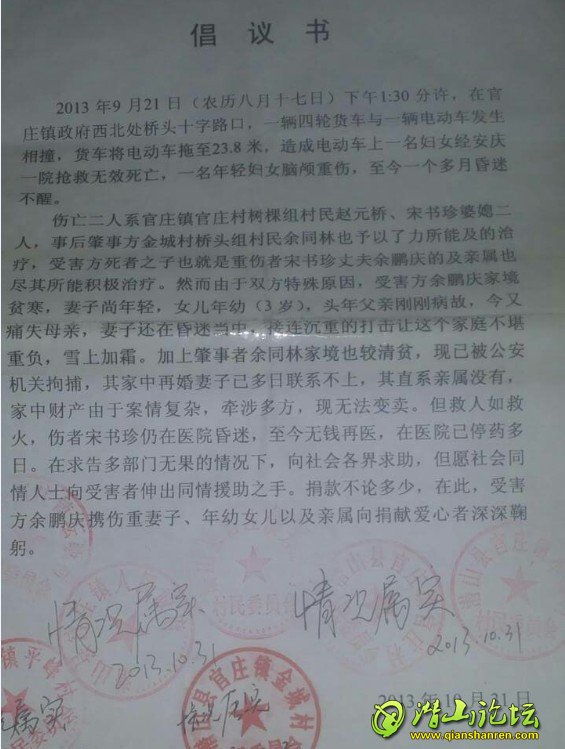 倡议书
2013年9月21日（农历八月十七日）下午1:30分许，在官
庄镇政府西北处桥头十字路口，一辆四轮货车与一辆电动车发生
相撞，货车将电动车拖至23.8米，造成电动车上一名妇女经安庆
一院抢救无效死亡，一名年轻妇女脑颅重伤，至今一个多月昏迷
不醒。
伤亡二人系官庄镇官庄村树棵组村民赵元桥、宋书珍婆媳二
人，事后肇事方金城村桥头组村民余同林也予以了力所能及的治
疗，受害方死者之子也就是重伤者宋书珍丈夫余鹏庆的及亲属也
尽其所能积极治疗。然而由于双方特殊原因，受害方余鹏庆家境
贫寒，妻子尚年轻，女儿年幼（3岁），头年父亲刚刚病故，今又
痛失母亲，妻子还在昏迷当中，接连沉重的打击让这个家庭不堪
重负，雪上加霜。加上肇事者余同林家境也较清贫，现已被公安
机关拘捕，其家中再婚妻子已多日联系不上，其直系亲属没有，
家中财产由于案情复杂，牵涉多方，现无法变卖。但救人如救
火，伤者宋书珍仍在医院昏迷，至今无钱再医，在医院已停药多
日。在求告多部门无果的情况下，向社会各界求助，但愿社会同
情人士向受害者伸出同情援助之手。捐款不论多少，在此，受害
方余鹏庆携伤重妻子、年幼女儿以及亲属向捐献爱心者深深鞠
躬。
情况属实
2013.10.31
情况属实
2013.10.31
村民委员会
潜山县官庄镇
镇平峰村
属实
县官庄镇金城村
情况属实
2013年10月31日
潜山论坛
www.qianshanren.com